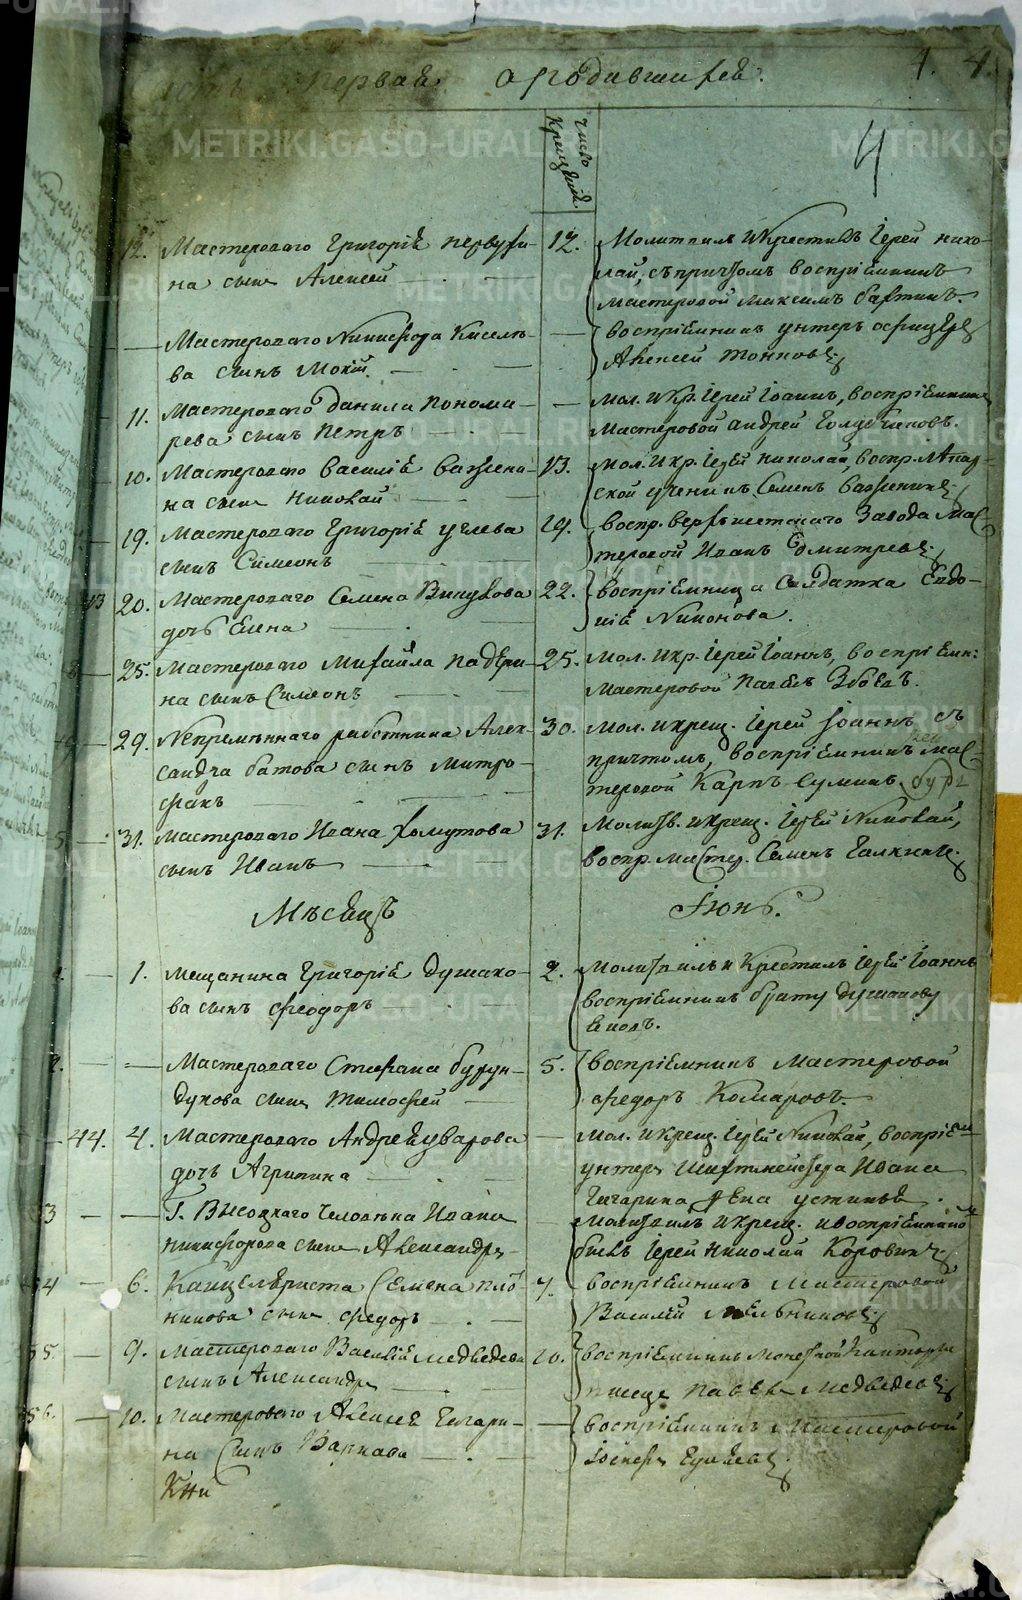 часть первая о родившихся. 4. 4.
число крещений.
4
12. Мастероваго Григорiя первуши-
на сынъ Алексей
12. Молитвилъ и крестилъ Iерей нико-
лай, съ причтомъ воспрiемникъ
мастеровой Максимъ
Мастероваго Никифора Кисель-
ва сынъ Мокiй
воспрiемникъ унтеръ офицеръ
Алексей
11. Мастероваго данила понома-
рева сынъ петръ
Мол. и кр. Iерей Iоаннъ, воспрiемникъ
Мастеровой андрей
10. Мастероваго василiя важени-
на сынъ николай
13. Мол. и кр. Iерей николай, воспр.
ской ученикъ Семенъ важенинъ
19. Мастероваго Григорiя углева
сынъ Симеонъ
19. воспр. верхъисетскаго Завода мас-
теровой Иванъ дмитревъ
20. Мастероваго Семена Викулова
дочь Елена
22. воспрiемница Солдатка Евдо-
кiя Никонова.
25. Мастероваго михайла падери-
на сынъ Симеонъ
25. Мол. и кр. Iерей Iоаннъ, воспрiемн:
Мастеровой павелъ
29. Непременнаго работника Алек-
сандра батова сынъ митро-
фанъ
30. Мол. и крещ. Iерей Iоаннъ съ
причтомъ, воспрiемникъ мас-
теровой Карпъ
31. мастероваго Ивана хомутова
сынъ Иванъ
31. Молитв. и крещ. Iерей Николай,
воспр. мастер. Семенъ Галкинъ.
Месяцъ Iюнь.
1. мещанина Григорiя душако-
ва сынъ феодоръ
2. молитвилъ и Крестилъ Iерей Iоаннъ
воспрiемникъ братъ
Мастероваго Стефана бурун-
дукова сынъ тимофей
5. воспрiемникъ мастеровой
федоръ Комаровъ.
44. 4. Мастероваго Андрея уварова
дочь Агрипина
Мол. и крещ. Iерей Николай, воспрiем
унтеръ шихтмейстера Ивана
Гагарина жена устинья.
53 Г. Высоцкаго человека Ивана
никифорова сынъ Александръ
молитвилъ и крещ. и воспрiемникомъ
былъ Iерей николай Коровинъ
54 6. Канцеляриста Семена пло-
никова сынъ федоръ
7. воспрiемникъ Мастеровой
Василiй мельниковъ
55. 9. Мастероваго Василiя медведева
сынъ Александръ
10. воспрiемникъ монетной канторы
писецъ павелъ медведевъ
56. 10. мастероваго Алексея Гагари-
на Сынъ Варнава
воспрiемникъ мастеровой
Iосифъ
Кни
METRIKI.GASO-URAL.RU